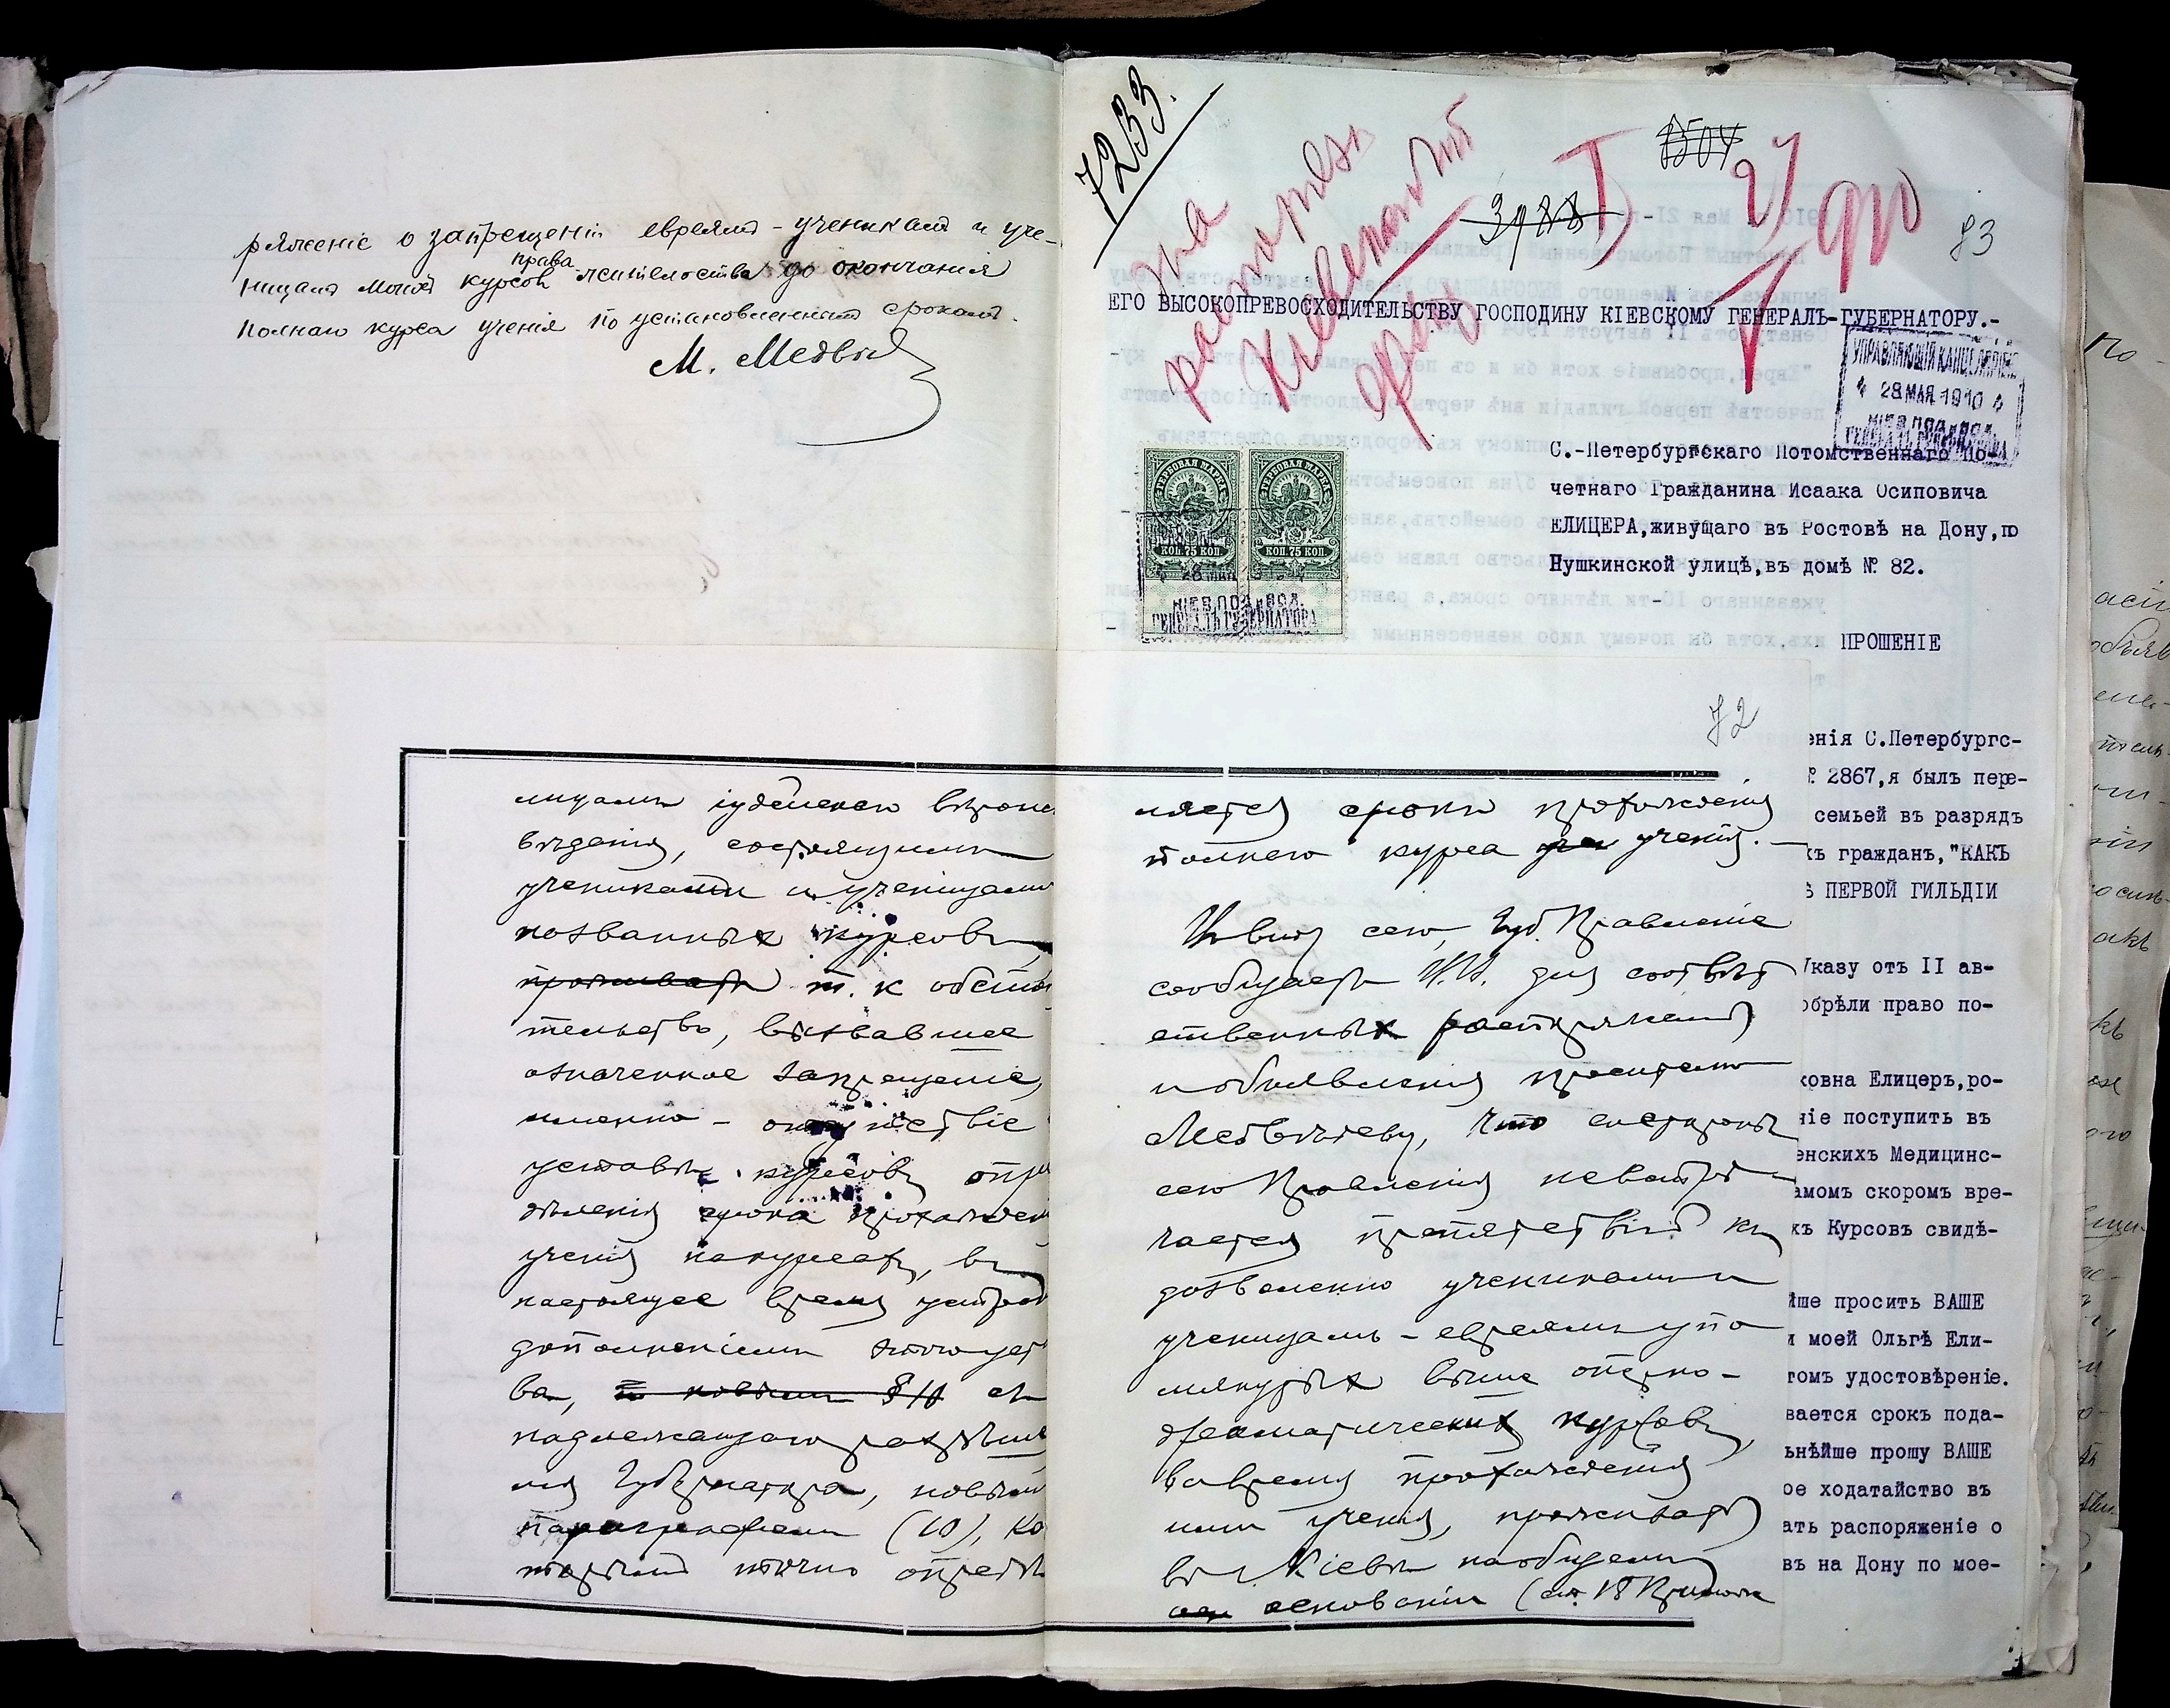 ряженіе о запрещеніи евреямъ-ученикамъ и уче-
ницамъ моихъ курсовъ права жительства до окончанія
полнаго курса ученія по установленнымъ срокамъ.
М. Медвѣд
7233.
8504
3988
I
27
73
на
ЕГО ВЫСОКОПРЕВОСХОДИТЕЛЬСТВУ ГОСПОДИНУ КІЕВСКОМУ ГЕНЕРАЛЪ-ГУБЕРНАТОРУ.-
УПРАВЛЯЮЩІЙ КАНЦЕЛЯРІЕЮ
28 МАЯ 1910
КІЕВ. ПОД. и ВОЛ.
ГЕНЕРАЛЪ ГУБЕРНАТОРА
С.-Петербургскаго Потомственнаго По-
четнаго Гражданина Исаака Осиповича
ЕЛИЦЕРА,живущаго въ Ростовѣ на Дону,по
Пушкинской улицѣ,въ домѣ № 82.
ГЕРБОВАЯ МАРКА
КОП. 75 КОП.
ГЕРБОВАЯ МАРКА
КОП. 75 КОП.
КІЕВ. ПОД. и ВОЛ.
ГЕНЕРАЛЪ ГУБЕРНАТОРА
ПРОШЕНІЕ
72
лицамъ іудейскаго вѣроис
вѣданія, состоящимъ
учениками и ученицами
названныхъ курсовъ
проживать т. к обстоя
тельство, вызвавшее
означенное запрещеніе,
именно - отсутствіе
уставѣ курсовъ опре
дѣленія срока прохожден
ученія на курсахъ, въ
настоящее время устран
дополненіемъ этого уст
ва, съ
надлежащаго разрѣше
нія Губернатора, новымъ
параграфомъ (10), ко
торымъ точно опредѣ
ляется срокъ прохожденія
полнаго курса ученія.
Въ виду сего, Губ. Правленіе
сообщаетъ И.И. для соотвѣт
ственныхъ распоряженій
и объявленія просителю
Медвѣдеву, что со стороны
сего Правленія не встрѣ
чается препятствій къ
дозволенію ученикамъ и
ученицамъ - евреямъ упо
мянутыхъ выше оперно-
драматическихъ курсовъ,
во время прохожденія
ими ученія, проживать
въ г. Кіевѣ на общемъ
основаніи (ст. 18 Прилож
енія С.Петербургс-
№ 2867,я былъ пере-
семьей въ разрядъ
хъ гражданъ,"КАКЪ
Ѣ ПЕРВОЙ ГИЛЬДІИ
Указу отъ II ав-
обрѣли право по-
ковна Елицеръ,ро-
ніе поступить въ
енскихъ Медицинс-
амомъ скоромъ вре-
хъ Курсовъ свидѣ-
йше просить ВАШЕ
и моей Ольгѣ Ели-
томъ удостовѣреніе.
вается срокъ пода-
ьнѣйше прошу ВАШЕ
ое ходатайство въ
ать распоряженіе о
вѣ на Дону по мое-